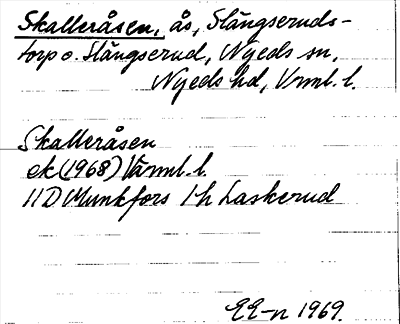 Skalleråsen, ås, Slängseruds-
torp o. Slängserud, Nyeds sn,
Nyeds hd, Vrml. l.
Skalleråsen
ek (1968) Värml. l.
11D Munkfors 1h Laskerud
EE-n 1969.